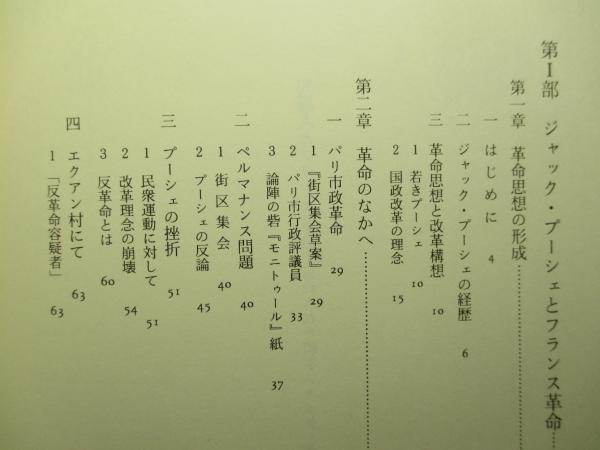 第Ⅰ部 ジャック・プーシェとフランス革命……
第一章 革命思想の形成……………
一 はじめに 4
二 ジャック・プーシェの経歴 6
三 革命思想と改革構想 10
1 若きプーシェ 10
2 国政改革の理念 15
第二章 革命のなかへ……………
一 パリ市政革命 29
1 『街区集会草案』 29
2 パリ市行政評議員 33
3 論陣の砦『モニトゥール』紙 37
二 ペルマナンス問題 40
1 街区集会 40
2 プーシェの反論 45
三 プーシェの挫折 51
1 民衆運動に対して 51
2 改革理念の崩壊 54
3 反革命とは 60
四 エクアン村にて 63
1 「反革命容疑者」 63